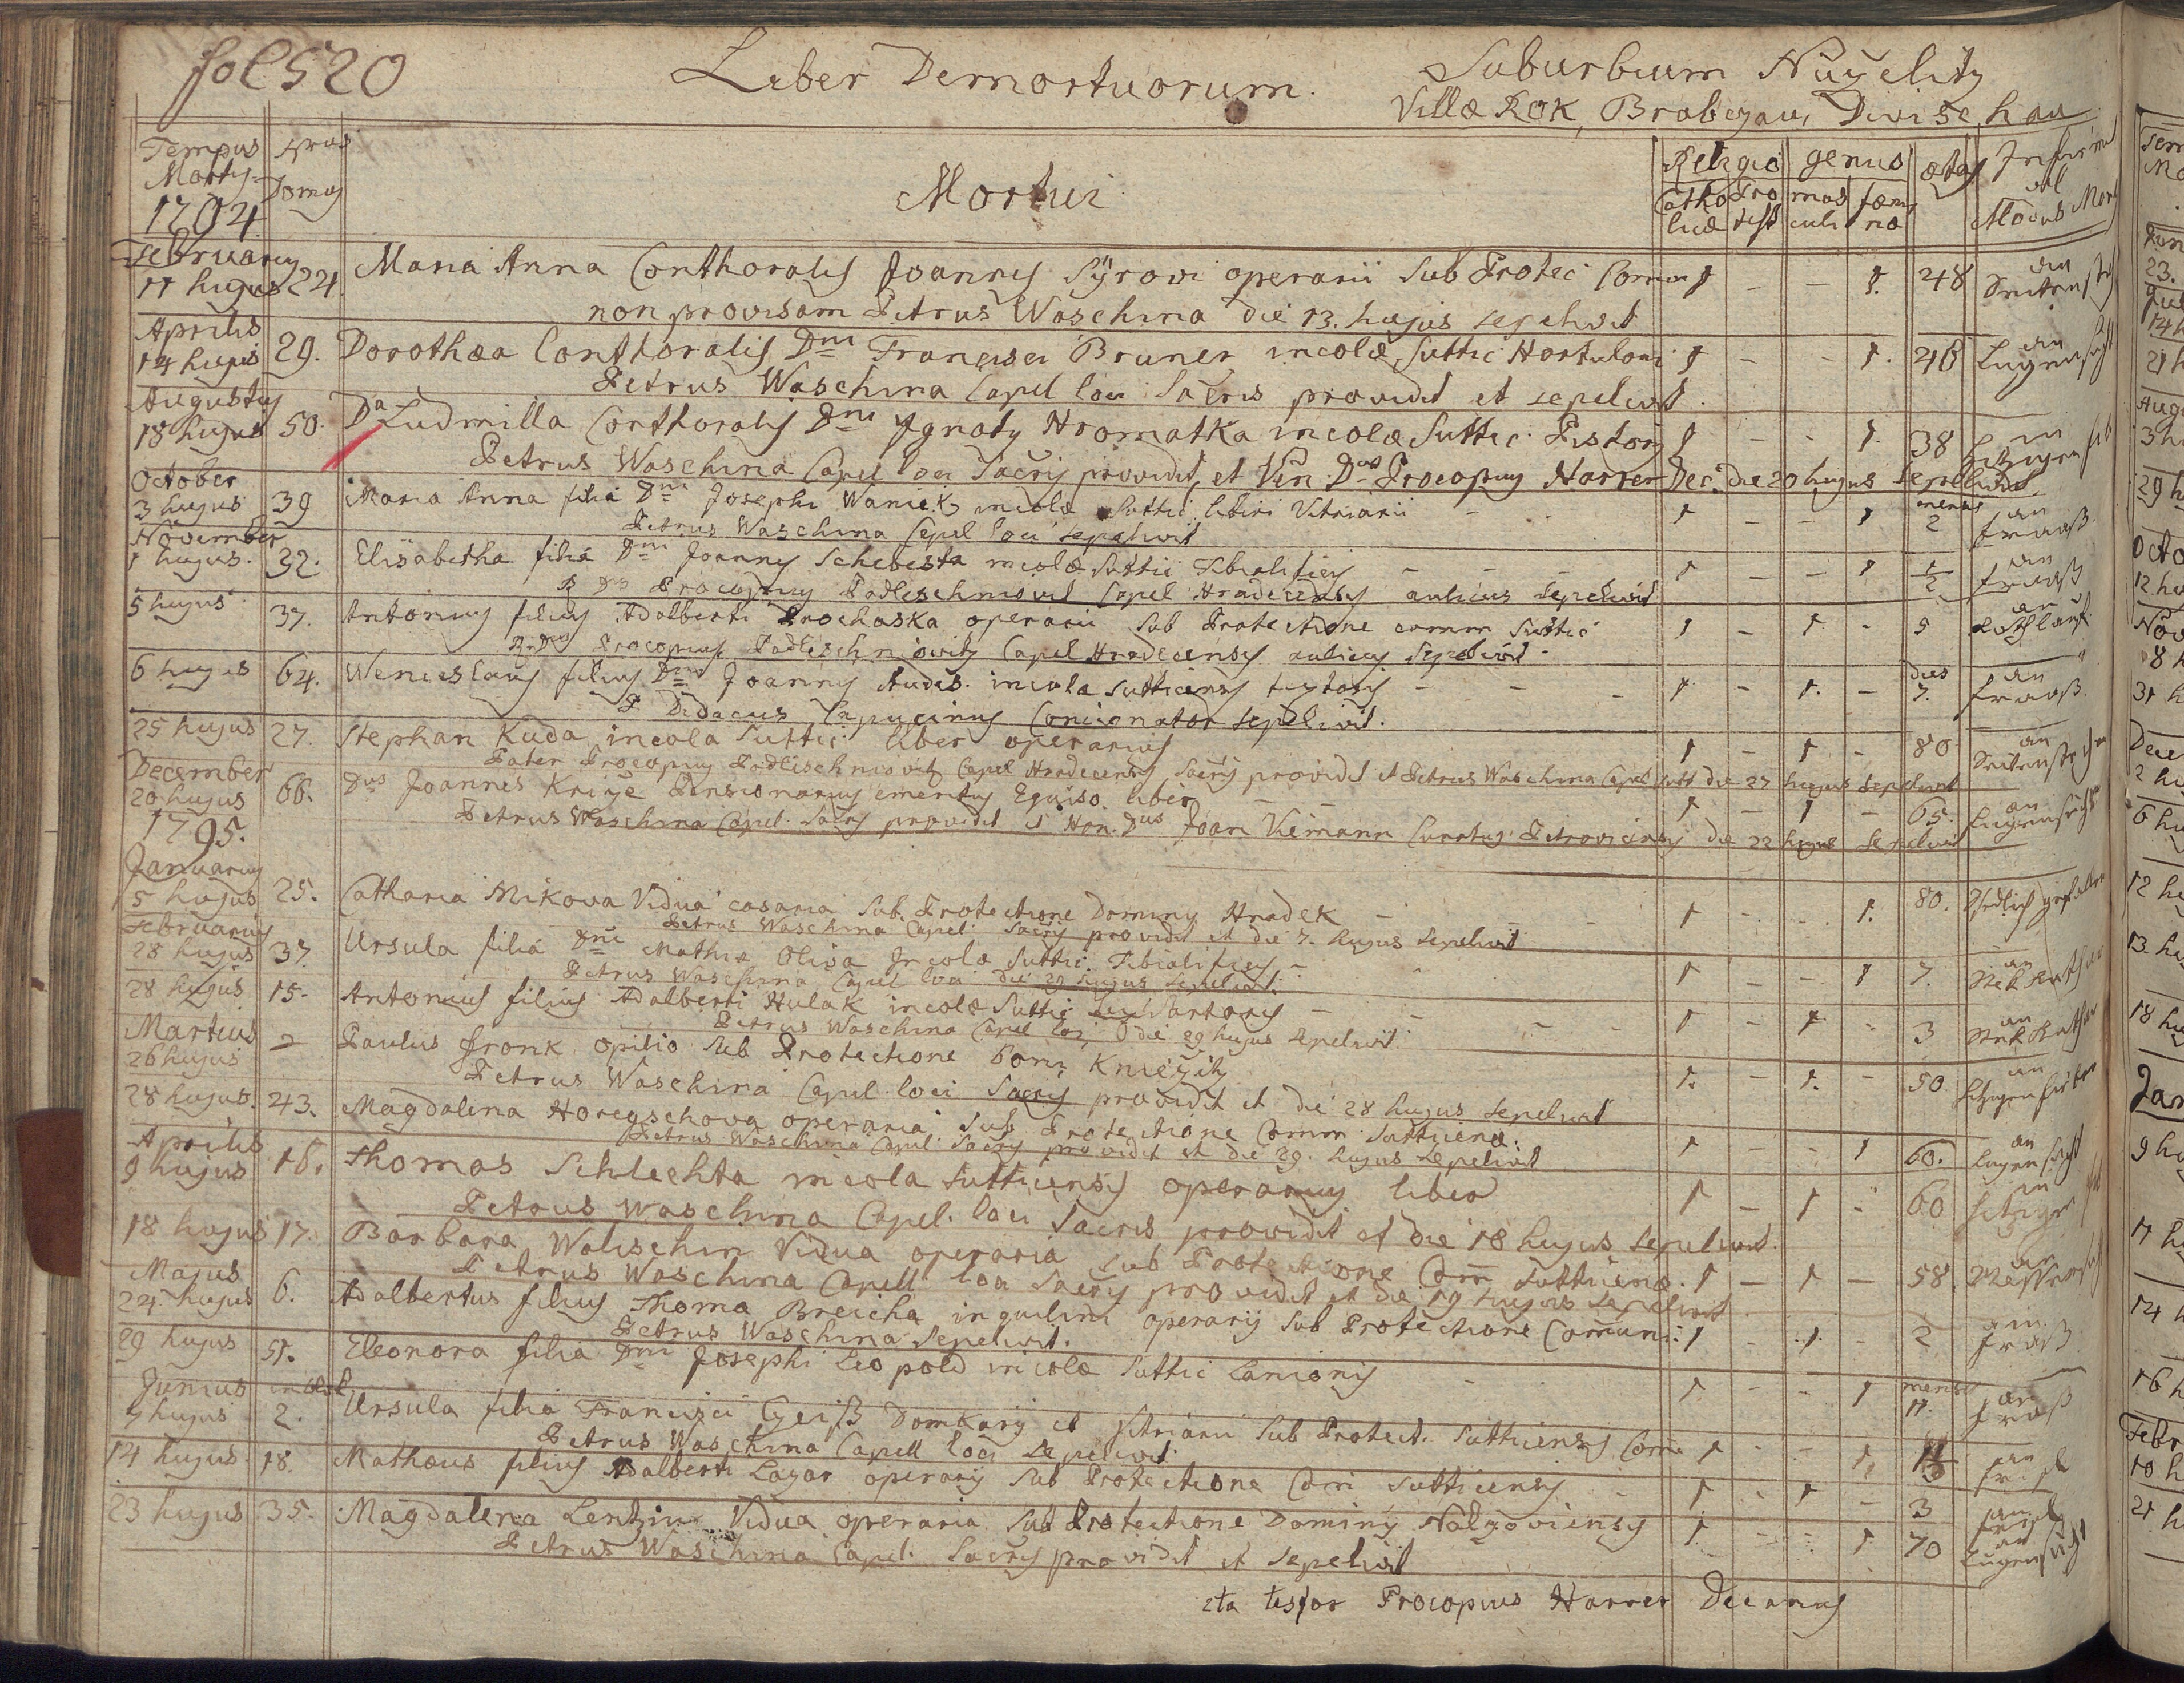 fol 520
Liber Demortuorum.
Suburbium Nuzelitz
Villæ Rok, Brabczau, Diwischau
Tempus Mortis 1794
Nrus Domus
Mortui
Religio
Catholicæ
Protest
genus
masculi
fæminæ
ætas
Infirmitas vel Modus Mortis
Februarius
11 hujus 24. Maria Anna Conthoralis Joannis Sÿrovi operarii Sub Protec Comm 1 - - 1. 48 an Seitenstech
non provisam Petrus Waschina die 13. hujus sepelivit
Aprilis
14 hujus 29. Dorothæa Conthoralis Dni Francisci Bruner incolæ Suttic Hortulani 1 - - 1. 46 an Lugensucht
Petrus Waschina Capel loci Sacris providit et sepelivit.
Augustus
18 hujus 50. Da Ludmilla Conthoralis Dni Ignatii Hromatka incolæ Suttic. Pistoris 1 - - 1. 38
Petrus Waschina Capel loci Sacris providit, et Ven. Dnus Procopius Harrer Dec. die 20 hujus Sepelivit
October
3 hujus 39 Maria Anna filia Dni Josephi Waniek incolæ Suttic liberi Vitriarii 1 - - 1 mensis 2 an fraas
Petrus Waschina Capel loci sepelivit
November
1 hujus. 32. Elisabetha filia Dni Joannis Schebesta incolæ Suttic Tibialificis 1 - - 1 1/2 an fraaß
P. Procopius Padleschniovit Capel Hradecensis aulicus sepelivit
5 hujus 37. Antonius filius Adalberti Prochaska operarii Sub Protectione comm Suttic 1 - 1 - 5 an
R. Dnus Procopius Padleschniovitz Capel Hradecensis aulicus Sepelivit
6 hujus 64. Wenceslaus filius Dni Joannis Audes. incola Sutticensis textoris 1 - 1. - dies 7. an fraaß
P Didacus Capucinus Concionator sepelivit.
25 hujus 27. Stephan Kuda incola Suttic liber operarius 1 - 1 - 80 an Seitenstechen
Pater Procopius Padleschniovitz Capel Hradecensis Sacris providit et Petrus Waschina Capel sutt die 27 hujus Sepelivit
December
20 hujus 66. Dnus Joannes Krize Pensionarius emeritus Equiso. liber 1 - 1 - 65. an Lugensucht
Petrus Waschina Capel. Sacris providit et Hon. Dnus Joan Kemann Curatus Petrovicensis die 22 hujus sepelivit
1795.
Januarius
5 hujus 25. Catharia Mikova Vidua casaria Sub. Protectione Dominy Hradek 1 - - 1. 80.
Petrus Waschina Capel. Sacris providit et die 7. hujus sepelivit
Februarius
28 hujus 37. Ursula filia Dni Mathiæ Oliva Incolæ Suttic. Tibialificis 1 - - 1 7. an
Petrus Waschina Capel loci die 29 hujus Sepelivit.
28 hujus 15. Antonius filius Adalberti Hulak incolæ Suttic Sartoris 1 - 1 - 3 an
Petrus Waschina Capel loci die 29 hujus sepelivit.
Martius
26 hujus 2 Paulus Fronk opilio Sub Protectione boni Kniezitz 1. - 1. - 50 an
Petrus Waschina Capel. loci Sacris providit et die 28 hujus sepelivit
28 hujus. 43. Magdalena Horegschova operaria Sub Protectione Comm Sutticenæ. 1 - - 1 60. an Lugensucht
Petrus Waschina Capel. Sacris providit et die 29. hujus sepelivit
Aprilis
9 hujus 16. Thomas Schlechta incola Sutticensis operarius liber 1 - 1 - 60
Petrus Waschina Capel. loci Sacris providit et die 18 hujus sepelivit.
18 hujus 17. Barbara Walischin Vidua operaria sub Protectione Com Sutticenæ. 1 - 1 - 58. an
Petrus Waschina Capell loci Sacris providit et die 19 hujus sepelivit
Majus
24. hujus 6. Adalbertus filius Thoma Breicha inquilini operarii Sub Protectione Comuni. 1 - 1. - 2 am fraß
Petrus Waschina Sepelivit.
29 hujus 51. Eleonora filia Dni Josephi Leopold incolæ Suttic Lanionis 1 - - 1 mensis 11. an fraß
Junius
7 hujus 2. Ursula filia Francisci Geiß Domkarii et Vitriarii Sub Protect. Sutticensis Com 1 - - 1. an
Petrus Waschina Capell loci Sepelivit.
14 hujus. 18. Mathæus filius Adalberti Lagar operarii Sub Protectione Com Sutticensis 1 - 1 - 3 an
23 hujus 35. Magdalena Lentzin Vidua operaria Sub Protectione Dominy Nalzoviensis 1. - - 1 70 an Lugensucht
Petrus Waschina Capel. Sacris providit et sepelivit
ita testor Procopius Harrer Decanus